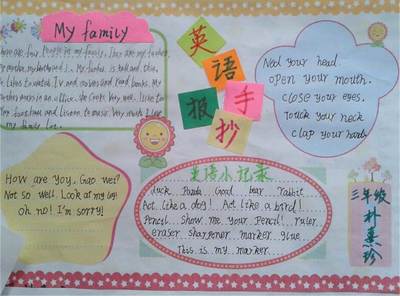 My family
There are four people in my family. They are my father,
my mother, my brother and I. My father is tall and thin.
He likes to watch TV and movies and read books. My
mother works in an office. She cooks very well. I like to
and listen to music. Very much I love
my family too.
英
語
报
手
抄
Nod your head.
open your mouth.
close your eyes.
Touch your neck
clap your hands
How are you, Gao wei?
Not so well. Look at my leg!
Oh no! I'm sorry!
英语小记录
duck Panda Good bear rabbit
Act like a dog! Act like a bird!
Pencil Show me your Pencil! ruler
eraser sharpener marker glue
This is my marker
三年级